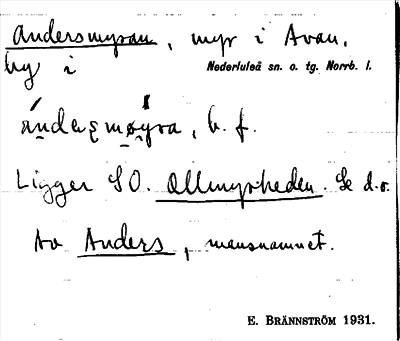 Andersmyran, myr i Avan,
by i Nederluleå sn. o. tg. Norrb. l.
b. f.
Ligger SO. Ollmyrheden. Se d.o.
Av Anders, mansnamnet.
E. BRÄNNSTRÖM 1931.